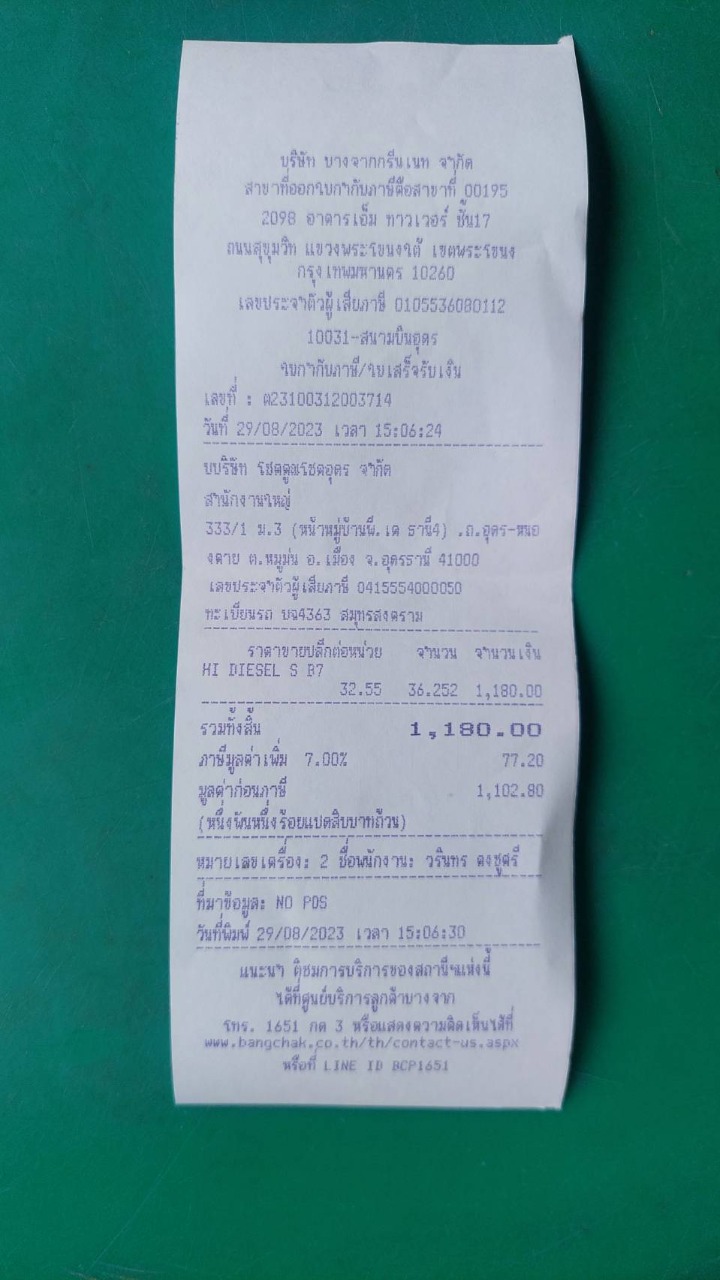 บริษัท บางจากกรีนเนท จำกัด
สาขาที่ออกใบกำกับภาษีคือสาขาที่ 00195
2098 อาคารเอ็ม ทาวเวอร์ ชั้น17
ถนนสุขุมวิท แขวงพระโขนงใต้ เขตพระโขนง
กรุงเทพมหานคร 10260
เลขประจำตัวผู้เสียภาษี 0105536080112
10031-สนามบินอุดร
ใบกำกับภาษี/ใบเสร็จรับเงิน
เลขที่ : ต23100312003714
วันที่ 29/08/2023 เวลา 15:06:24
บบริษัท โชคคูณโชคอุดร จำกัด
สำนักงานใหญ่
333/1 ม.3 (หน้าหมู่บ้านพี.เค ธานี4) .ถ.อุดร-หนอ
งคาย ต.หมูม่น อ.เมือง จ.อุดรธานี 41000
เลขประจำตัวผู้เสียภาษี 0415554000050
ทะเบียนรถ บฉ4363 สมุทรสงคราม
ราคาขายปลีกต่อหน่วย จำนวน จำนวนเงิน
HI DIESEL S B7
32.55 36.252 1,180.00
รวมทั้งสิ้น 1,180.00
ภาษีมูลค่าเพิ่ม 7.00% 77.20
มูลค่าก่อนภาษี 1,102.80
(หนึ่งพันหนึ่งร้อยแปดสิบบาทถ้วน)
หมายเลขเครื่อง: 2 ชื่อพนักงาน: วรินทร คงชูศรี
ที่มาข้อมูล: NO POS
วันที่พิมพ์ 29/08/2023 เวลา 15:06:30
แนะนำ ติชมการบริการของสถานีฯแห่งนี้
ได้ที่ศูนย์บริการลูกค้าบางจาก
โทร. 1651 กด 3 หรือแสดงความคิดเห็นได้ที่
www.bangchak.co.th/th/contact-us.aspx
หรือที่ LINE ID BCP1651